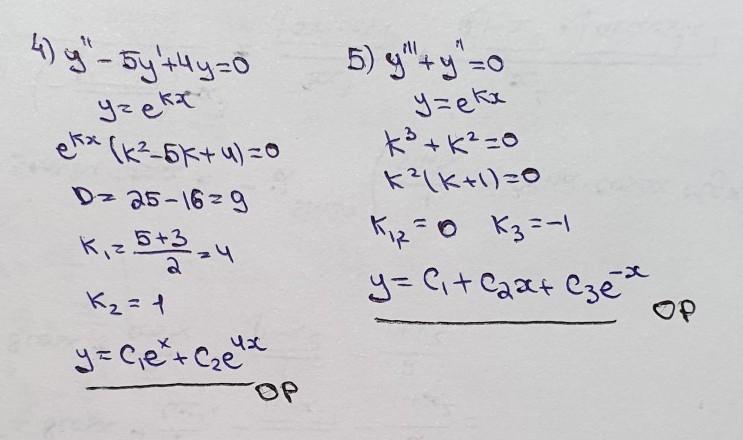 4) y'' - 5y' + 4y = 0
y = e^{kx}
e^{kx} (k² - 5k + 4) = 0
D = 25 - 16 = 9
K₁ = \frac{5+3}{2} = 4
K₂ = 1
y = C₁e^{x} + C₂e^{4x}
OP
5) y''' + y'' = 0
y = e^{kx}
k³ + k² = 0
k² (k + 1) = 0
K₁,₂ = 0 K₃ = -1
y = C₁ + C₂x + C₃e^{-x}
OP